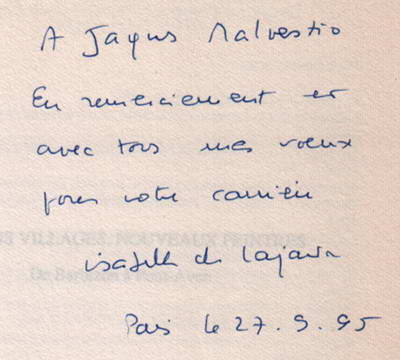 A Jaques Malvestio
En remerciement et
avec tous mes voeux
pour votre carrière
isabelle de Lajarte
Paris le 27.9.95
VILLAGES, NOUVEAUX PEINTRES
De Barbizon à Pont-Aven